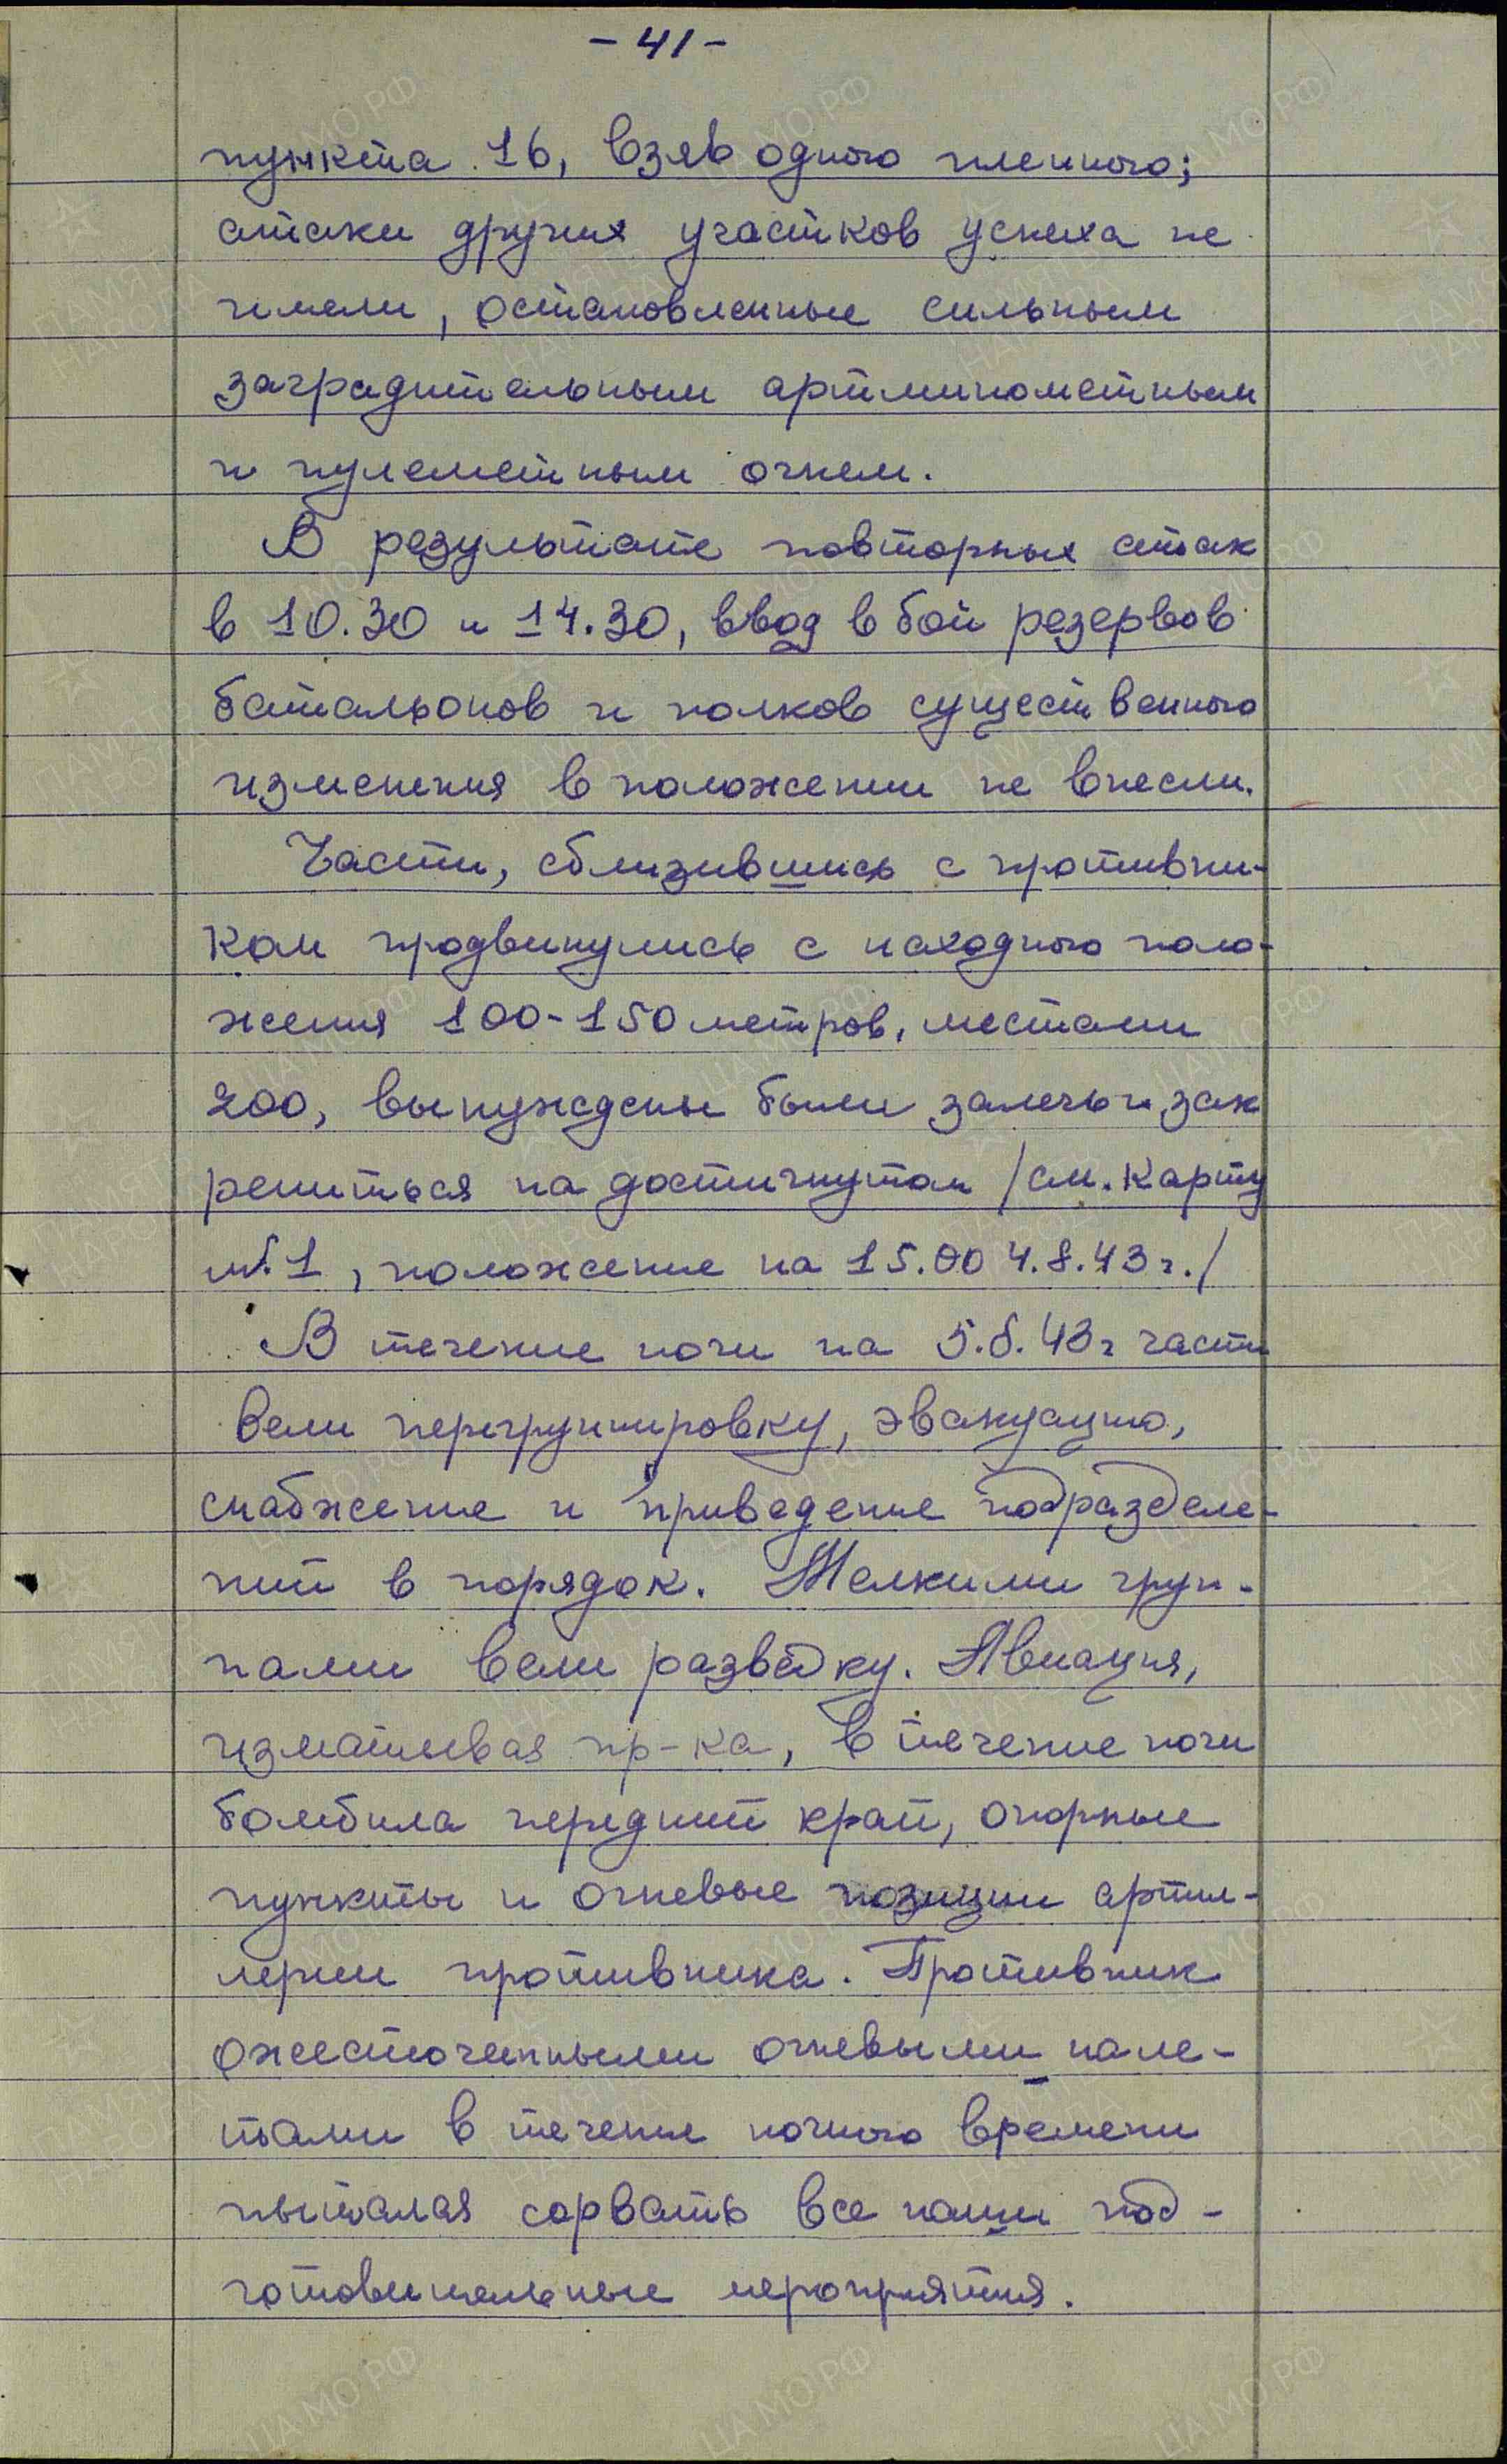 - 41 -
пункта 16, взяв одного пленного;
атаки других участков успеха не
имели, остановленные сильным
заградительным артминометным
и пулеметным огнем.
В результате повторных атак
в 10.30 и 14.30, ввод в бой резервов
батальонов и полков существенного
изменения в положении не внесли.
Части, сблизившись с противни-
ком продвинулись с исходного поло-
жения 100-150 метров, местами
200, вынуждены были залечь и зак
репиться на достигнутом /см. карту
№ 1, положение на 15.00 4.8.43 г./
В течение ночи на 5.8.43 г части
вели перегруппировку, эвакуацию,
снабжение и приведение подразделе-
ний в порядок. Мелкими груп-
пами вели разведку. Авиация,
изматывая пр-ка, в течение ночи
бомбила передний край, опорные
пункты и огневые позиции артил-
лерии противника. Противник
ожесточенными огневыми нале-
тами в течение ночного времени
пытался сорвать все наши под-
готовительные мероприятия.
ЦА МО РФ
ПАМЯТЬ
НАРОДА